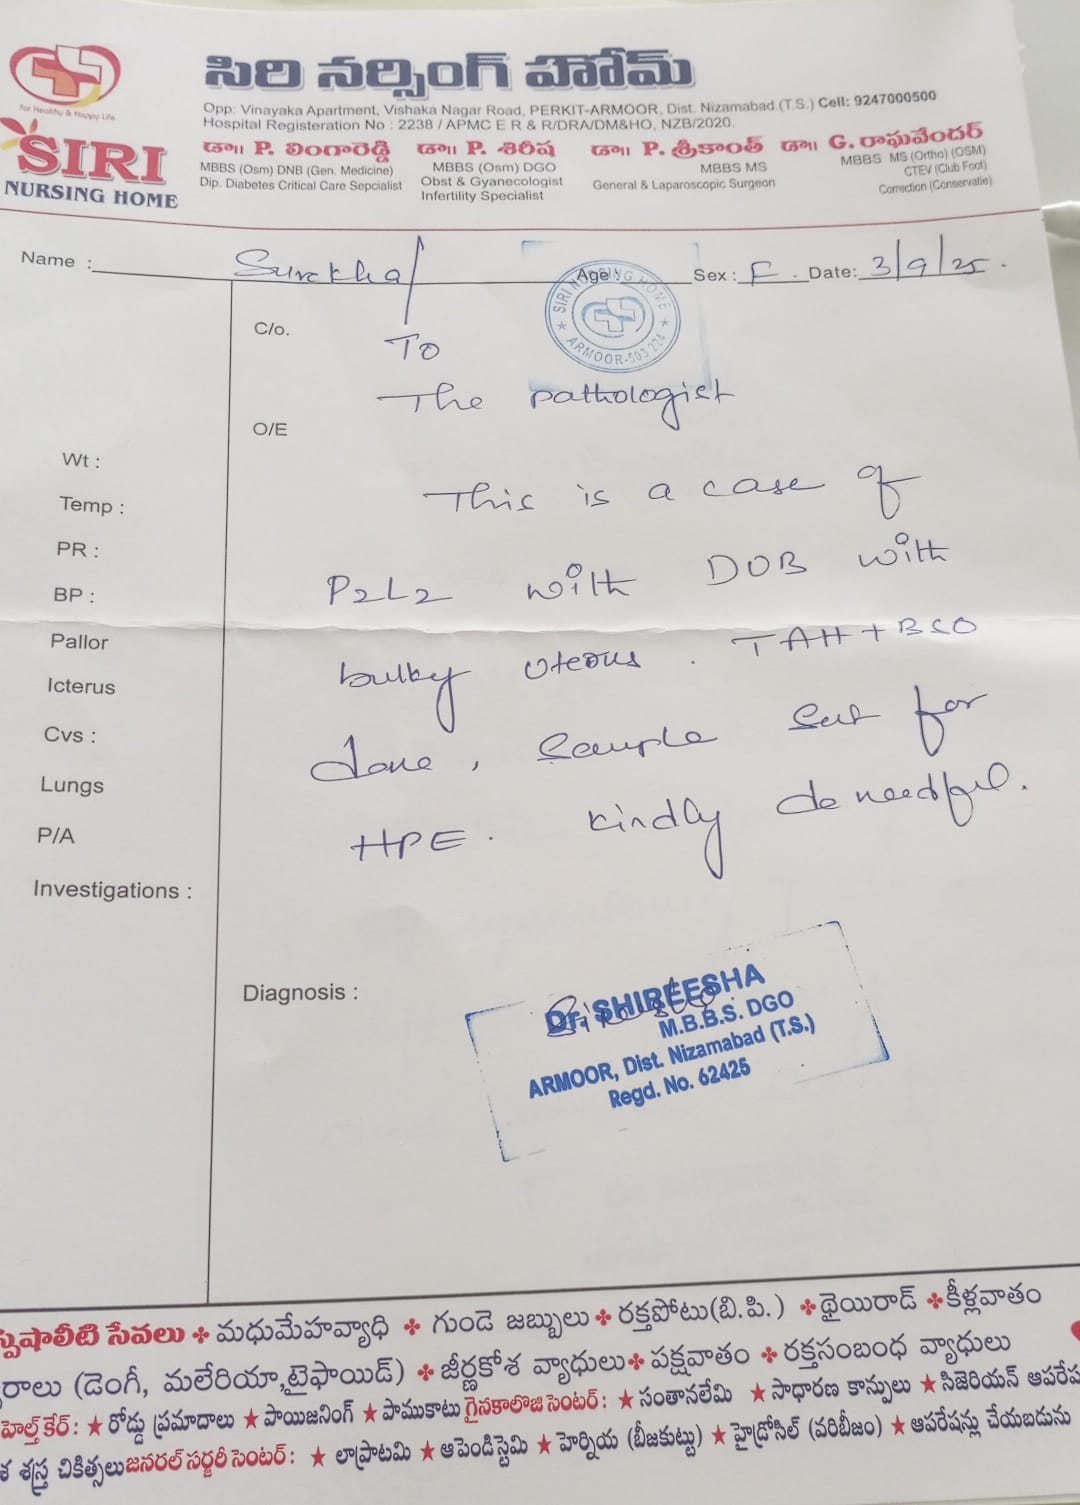 for Healthy & Happy Life
SIRI
NURSING HOME
సిరి నర్సింగ్ హోమ్
Opp: Vinayaka Apartment, Vishaka Nagar Road, PERKIT-ARMOOR, Dist. Nizamabad.(T.S.) Cell: 9247000500
Hospital Registeration No : 2238 / APMC E R & R/DRA/DM&HO, NZB/2020.
డా॥ P. లింగారెడ్డి
MBBS (Osm) DNB (Gen. Medicine)
Dip. Diabetes Critical Care Sepcialist
డా॥ P. శిరీష
MBBS (Osm) DGO
Obst & Gynaecologist
Infertility Specialist
డా॥ P. శ్రీకాంత్
MBBS MS
General & Laparoscopic Surgeon
డా॥ G. రాఘవేందర్
MBBS MS (Ortho) (OSM)
CTEV (Club Foot)
Correction (Conservatie)
Name : Surekha Age : Sex : F. Date: 3/9/25.
SIRI NURSING HOME
★ ARMOOR-503 224 ★
C/o.
To
The pathologist
O/E
Wt :
Temp :
PR :
BP :
Pallor
Icterus
Cvs :
Lungs
P/A
Investigations :
This is a case of
P2L2 with DOB with
bulky uterous. TAH+BSO
done, sample sent for
HPE. kindly do needful.
Diagnosis :
Dr. SHIREESHA
M.B.B.S. DGO
ARMOOR, Dist. Nizamabad (T.S.)
Regd. No. 62425
స్పెషాలిటి సేవలు ✤ మధుమేహవ్యాధి ✤ గుండె జబ్బులు ✤ రక్తపోటు(బి.పి.) ✤థైయిరాడ్ ✤కీళ్లవాతం
రాలు (డెంగీ, మలేరియా,టైఫాయిడ్) ✤జీర్ణకోశ వ్యాధులు✤ పక్షవాతం ✤రక్తసంబంధ వ్యాధులు
హెల్త్ కేర్: ★ రోడ్డు ప్రమాదాలు ★ పాయిజనింగ్ ★ పాముకాటు గైనకాలొజి సెంటర్: ★ సంతానలేమి ★ సాధారణ కాన్పులు ★ సిజెరియన్ ఆపరేష
శస్త్ర చికిత్సలు జనరల్ సర్జరీ సెంటర్: ★ లాప్రాటమి ★ ఆపెండిస్టెమి ★ హెర్నియ (బీజకుట్టు) ★ హైడ్రోసిల్ (వరిబీజం) ★ ఆపరేషన్లు చేయబడును